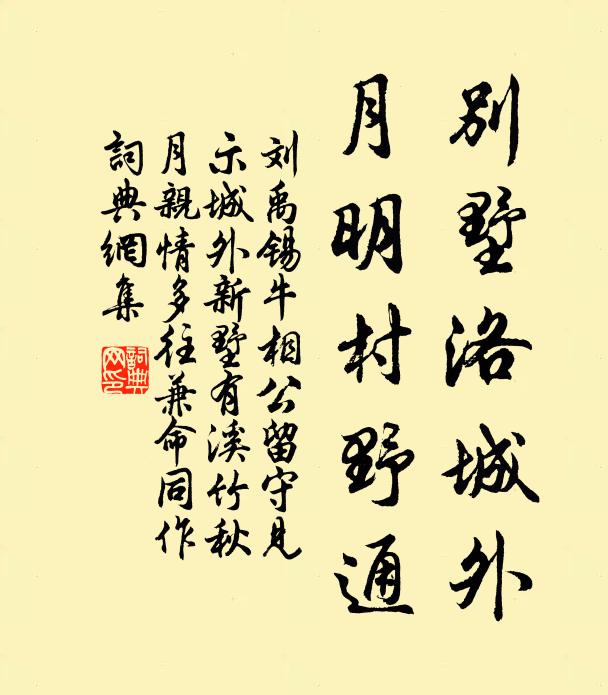 别墅洛城外
月明村野通
刘禹锡牛相公留守见
示城外新墅有溪竹秋
月親情多往兼命同作
詞典網集
詞典網印